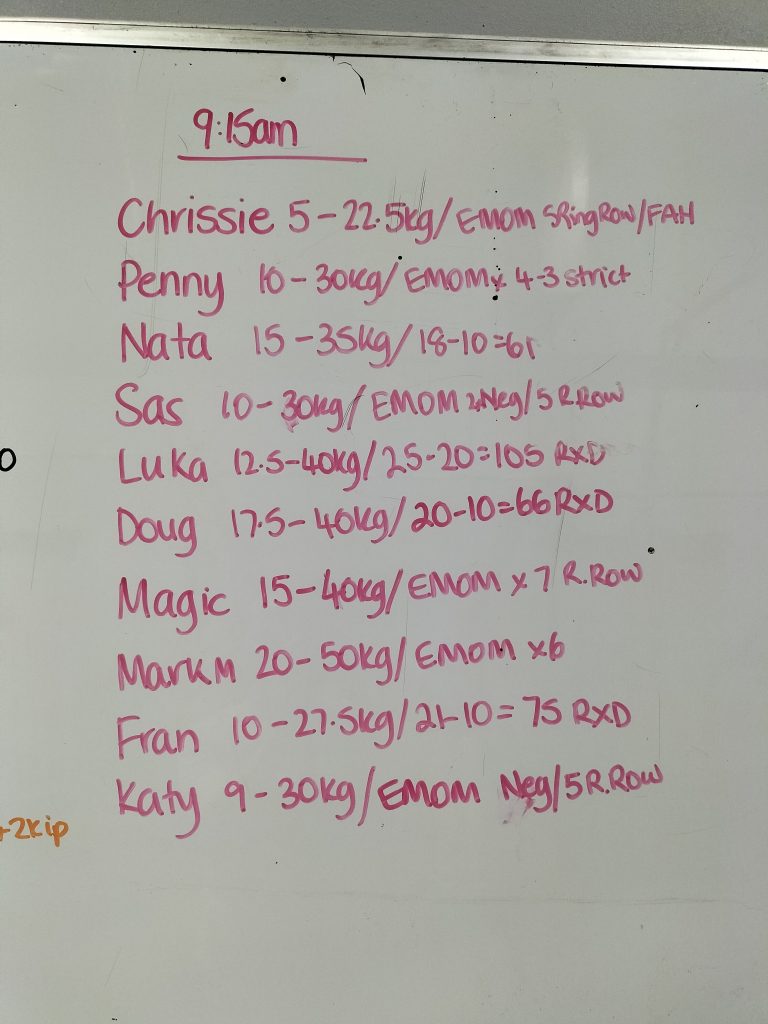 9:15am
Chrissie 5-22.5kg/ EMOM 5RingRow/FAH
Penny 10-30kg/ EMOM x 4-3 strict
Nata 15-35kg/ 18-10=61
Sas 10-30kg/ EMOM Neg/5 R.Row
Luka 12.5-40kg/25-20=105 RXD
0
Doug 17.5-40kg/ 20-10=66 RXD
Magic 15-40kg/EMOM x 7 R.Row
Mark M 20-50kg/ EMOM x6
Fran 10-27.5kg/21-10= 75 RXD
Katy 9-30kg/EMOM Neg/5R.Row
+2Kip